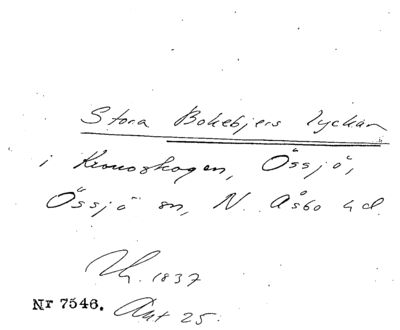 Stora Bokebjers lyckan
i Kronoskogen, Össjö,
Össjö sn, N. Åsbo hd.
Uh. 1837
Nr 7546. Akt 25.